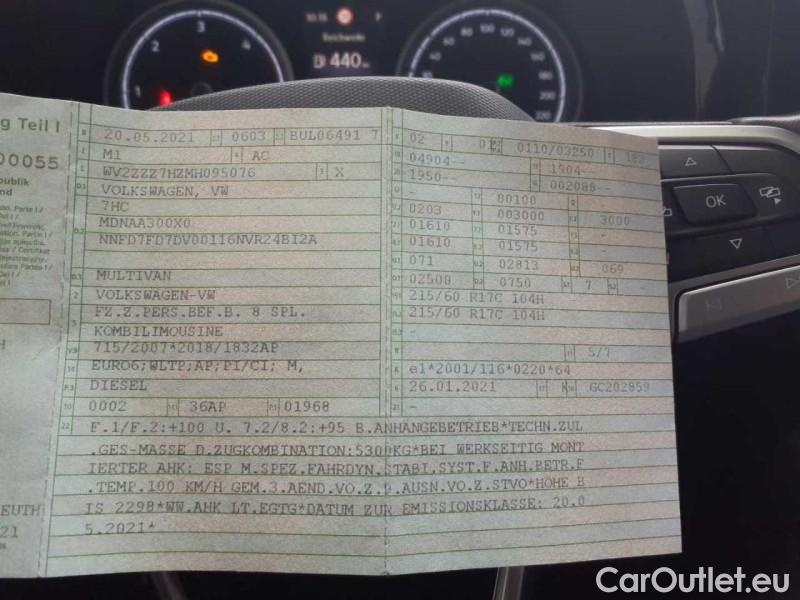 10:18
Reichweite
440
1 2 3 4
20 40 60 80 100 120 180 200 220
OK
g Teil I
00055
publik
nd
EUTH
21
B 20.05.2021 2.1 0603 2.2 BUL06491 7
J M1 4 AC
E WV2ZZZ7HZMH095076 3 X
D.1 VOLKSWAGEN, VW
7HC
D.2 MDNAA300X0
NNFD7FD7DV00116NVR24BI2A
D.3 MULTIVAN
2 VOLKSWAGEN-VW
5 FZ.Z.PERS.BEF.B. 8 SPL.
KOMBILIMOUSINE
V.9 715/2007*2018/1832AP
14 EURO6;WLTP;AP;PI/CI; M,
P.3 DIESEL
10 0002 14.1 36AP P.1 01968
02 0110/03250
04904-- 1904--
1950-- 002088
- 00100
0203 003000 3000
01610 01575
01610 01575
071 02813 069
02500 0750 7 -
215/60 R17C 104H
215/60 R17C 104H
-
- S/7
K e1*2001/116*0220*64
6 26.01.2021 17 K 16 GC202859
21 -
22 F.1/F.2:+100 U. 7.2/8.2:+95 B.ANHÄNGEBETRIEB*TECHN.ZUL
.GES-MASSE D.ZUGKOMBINATION:5300KG*BEI WERKSEITIG MONT
IERTER AHK: ESP M.SPEZ.FAHRDYN.STABI.SYST.F.ANH.BETR.F
.TEMP.100 KM/H GEM.3.AEND.VO.Z.9.AUSN.VO.Z.STVO*HÖHE B
IS 2298*WW.AHK LT.EGTG*DATUM ZUR EMISSIONSKLASSE: 20.0
5.2021*
CarOutlet.eu